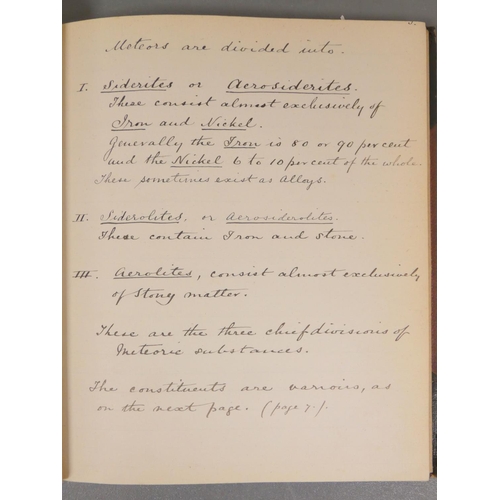 5.
Meteors are divided into.
I. Siderites or Aerosiderites.
These consist almost exclusively of
Iron and Nickel.
Generally the Iron is 80 or 90 per cent
and the Nickel 6 to 10 per cent of the whole.
These sometimes exist as Alloys.
II. Siderolites, or Aerosiderolites.
These contain Iron and stone.
III. Aerolites, consist almost exclusively
of Stony matter.
These are the three chief divisions of
Meteoric substances.
The constituents are various, as
on the next page. (page 7.).